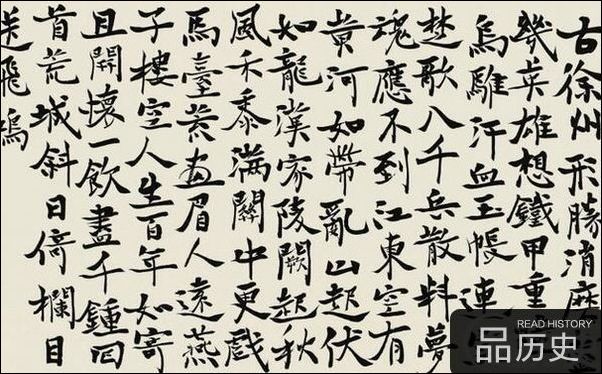 古徐州形勝消磨
幾英雄想鐵甲重
烏騅汗血玉帳連
楚歌八千兵散料夢
魂應不到江東空有
黃河如帶亂山起伏
如龍漢家陵闕起秋
風禾黍滿關中更戲
馬臺荒畫眉人遠燕
子樓空人生百年如寄
且開懷一飲盡千鍾回
首荒城斜日倚欄目
送飛鴻
READ HISTORY
品历史